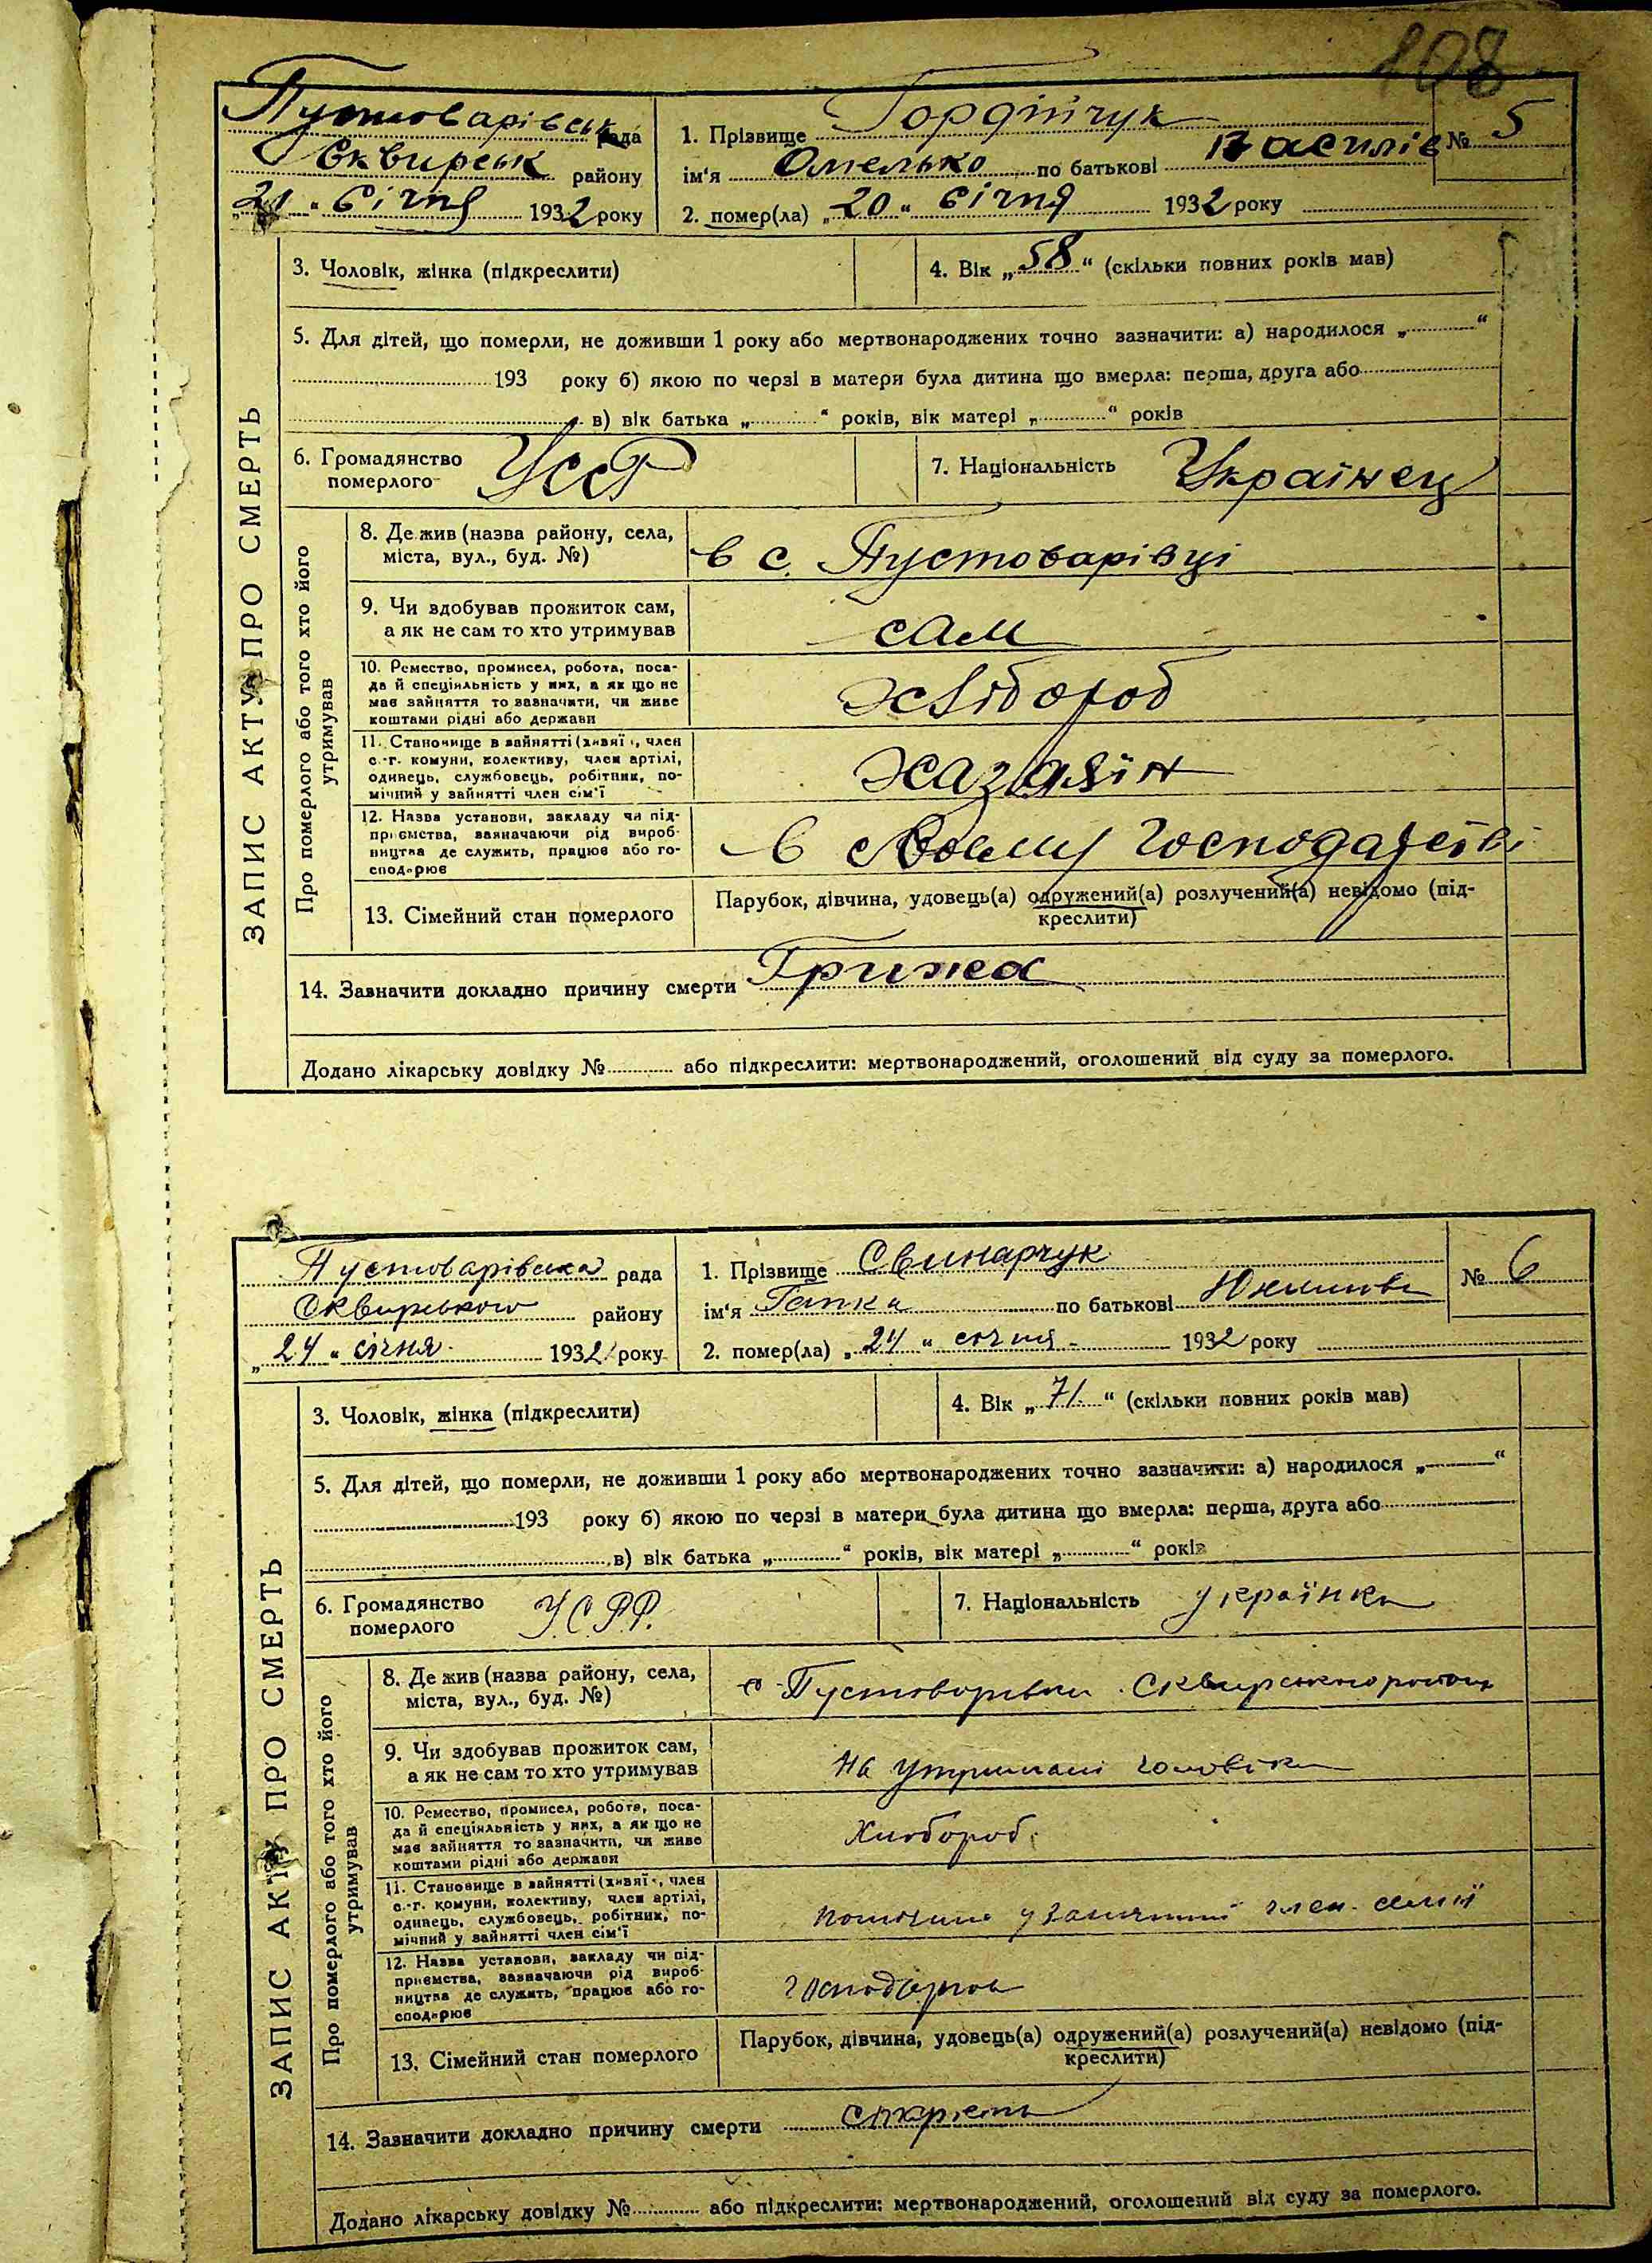 108
Пустоварівськ рада
Сквирськ району
„21“ Січня 1932 року
1. Прізвище Гордійчук
ім‘я Омелько по батькові Василів
2. помер(ла) „20“ Січня 1932 року
№ 5
ЗАПИС АКТУ ПРО СМЕРТЬ
3. Чоловік, жінка (підкреслити)
4. Вік „58“ (скільки повних років мав)
5. Для дітей, що померли, не доживши 1 року або мертвонароджених точно зазначити: а) народилося „ “
193 року б) якою по черзі в матери була дитина що вмерла: перша, друга або
в) вік батька „ “ років, вік матері „ “ років
6. Громадянство
померлого УССР
7. Національність Українец
Про померлого або того хто його
утримував
8. Де жив (назва району, села,
міста, вул., буд. №)
в с. Пустоварівці
9. Чи здобував прожиток сам,
а як не сам то хто утримував
сам
10. Ремество, промисел, робота, поса-
да й спеціяльність у них, а як що не
має зайняття то зазначити, чи живе
коштами рідні або держави
хлібороб
11. Становище в зайнятті (хазяї , член
с.-г. комуни, колективу, член артілі,
одинець, службовець, робітник, по-
мічний у зайнятті член сім‘ї
хазяїн
12. Назва установи, закладу чи під-
приємства, зазначаючи рід вироб-
ництва де служить, працює або го-
сподарює
в своєму господарстві
13. Сімейний стан померлого
Парубок, дівчина, удовець(а) одружений(а) розлучений(а) невідомо (під-
креслити)
14. Зазначити докладно причину смерти Грижа
Додано лікарську довідку № або підкреслити: мертвонароджений, оголошений від суду за померлого.
Пустоварівська рада
Сквирького району
„24“ січня 1932 року
1. Прізвище Свинарчук
ім‘я Гапка по батькові
2. помер(ла) „24“ січня 1932 року
№ 6
ЗАПИС АКТУ ПРО СМЕРТЬ
3. Чоловік, жінка (підкреслити)
4. Вік „71“ (скільки повних років мав)
5. Для дітей, що померли, не доживши 1 року або мертвонароджених точно зазначити: а) народилося „ “
193 року б) якою по черзі в матери була дитина що вмерла: перша, друга або
в) вік батька „ “ років, вік матері „ “ років
6. Громадянство
померлого У.С.Р.Р.
7. Національність українка
Про померлого або того хто його
утримував
8. Де жив (назва району, села,
міста, вул., буд. №)
с Пустоварівки Сквирського району
9. Чи здобував прожиток сам,
а як не сам то хто утримував
на утримані чоловіка
10. Ремество, промисел, робота, поса-
да й спеціяльність у них, а як що не
має зайняття то зазначити, чи живе
коштами рідні або держави
Хлібороб.
11. Становище в зайнятті (хазяї , член
с.-г. комуни, колективу, член артілі,
одинець, службовець, робітник, по-
мічний у зайнятті член сім‘ї
у член семії
12. Назва установи, закладу чи під-
приємства, зазначаючи рід вироб-
ництва де служить, працює або го-
сподарює
13. Сімейний стан померлого
Парубок, дівчина, удовець(а) одружений(а) розлучений(а) невідомо (під-
креслити)
14. Зазначити докладно причину смерти
Додано лікарську довідку № або підкреслити: мертвонароджений, оголошений від суду за померлого.